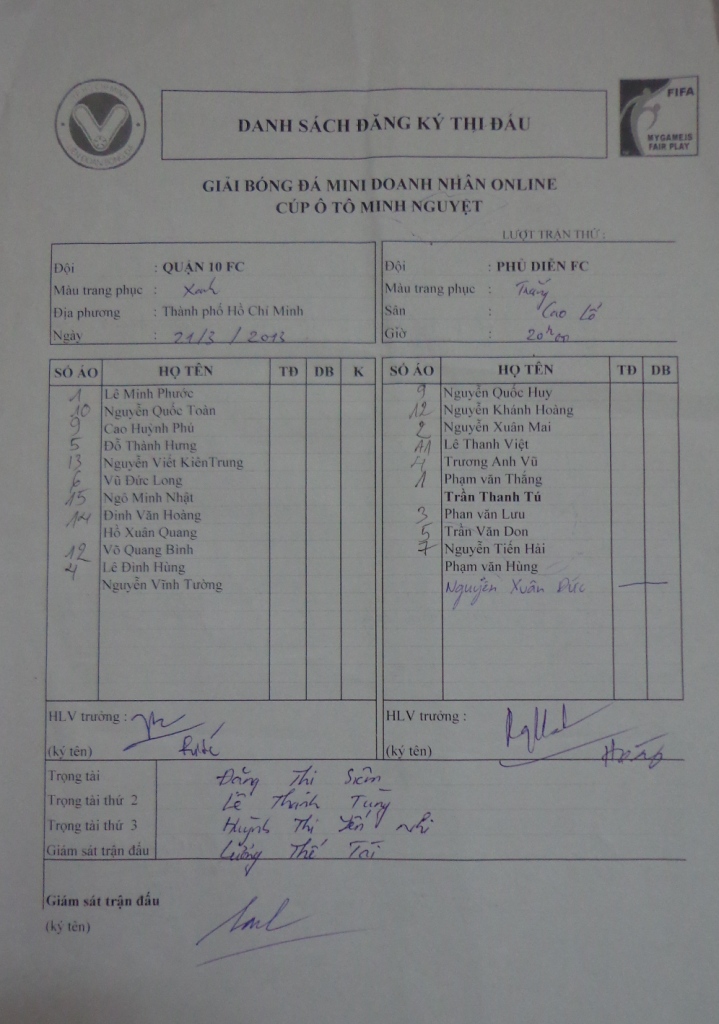 DANH SÁCH ĐĂNG KÝ THI ĐẤU
FIFA
MYGAMEIS
FAIR PLAY
GIẢI BÓNG ĐÁ MINI DOANH NHÂN ONLINE
CÚP Ô TÔ MINH NGUYỆT
LƯỢT TRẬN THỨ :
Đội : QUẬN 10 FC
Màu trang phục : Xanh
Địa phương : Thành phố Hồ Chí Minh
Ngày : 21/3 / 2013
Đội : PHÚ DIỄN FC
Màu trang phục : Trắng
Sân : Cao Lỗ
Giờ : 20h00
SỐ ÁO HỌ TÊN TĐ DB K
1 Lê Minh Phước
10 Nguyễn Quốc Toàn
9 Cao Huỳnh Phú
5 Đỗ Thành Hưng
13 Nguyễn Viết KiênTrung
6 Vũ Đức Long
15 Ngô Minh Nhật
14 Đinh Văn Hoàng
Hồ Xuân Quang
12 Võ Quang Bình
4 Lê Đình Hùng
Nguyễn Vĩnh Tường
SỐ ÁO HỌ TÊN TĐ DB
9 Nguyễn Quốc Huy
12 Nguyễn Khánh Hoàng
2 Nguyễn Xuân Mai
A1 Lê Thanh Việt
4 Trương Anh Vũ
1 Phạm văn Thắng
Trần Thanh Tú
3 Phan văn Lưu
5 Trần Văn Don
7 Nguyễn Tiến Hải
Phạm văn Hùng
Nguyễn Xuân Đức
HLV trưởng :
(ký tên)
HLV trưởng :
(ký tên)
Trọng tài Đặng Thị
Trọng tài thứ 2 Lê Thanh Tùng
Trọng tài thứ 3 Huỳnh Thị Yến Nhi
Giám sát trận đấu Lương Thế Tài
Giám sát trận đấu
(ký tên)